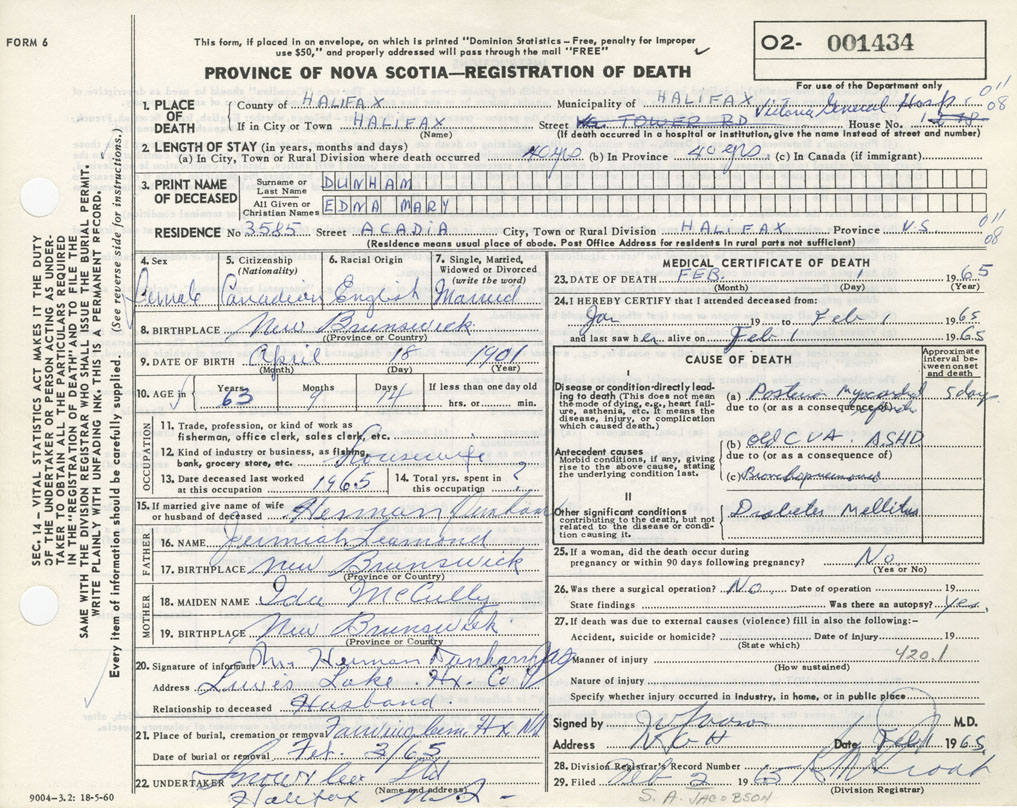 FORM 6
This form, if placed in an envelope, on which is printed "Dominion Statistics – Free, penalty for improper
use $50," and properly addressed will pass through the mail "FREE"
O2- 001434
For use of the Department only
PROVINCE OF NOVA SCOTIA—REGISTRATION OF DEATH
1. PLACE OF DEATH
County of HALIFAX Municipality of HALIFAX 011
If in City or Town HALIFAX Street TOWER RD Victoria General Hosp House No. 08
(Name) (If death occurred in a hospital or institution, give the name instead of street and number)
2. LENGTH OF STAY (in years, months and days)
(a) In City, Town or Rural Division where death occurred 40 yrs (b) In Province 40 yrs (c) In Canada (if immigrant)
3. PRINT NAME OF DECEASED
Surname or Last Name DUNHAM
All Given or Christian Names EDNA MARY
RESIDENCE No 3585 Street ACADIA City, Town or Rural Division HALIFAX Province N.S 011 08
(Residence means usual place of abode. Post Office Address for residents in rural parts not sufficient)
4. Sex Female
5. Citizenship (Nationality) Canadian
6. Racial Origin English
7. Single, Married, Widowed or Divorced (write the word) Married
8. BIRTHPLACE New Brunswick
(Province or Country)
9. DATE OF BIRTH April 18 1901
(Month) (Day) (Year)
10. AGE in Years 63 Months 9 Days 14 If less than one day old
hrs. or min.
OCCUPATION
11. Trade, profession, or kind of work as
fisherman, office clerk, sales clerk, etc.
12. Kind of industry or business, as fishing,
bank, grocery store, etc. Housewife
13. Date deceased last worked at this occupation 1965 14. Total yrs. spent in this occupation ?
15. If married give name of wife
or husband of deceased Herman Dunham
FATHER
16. NAME Jerimiah Leamond
17. BIRTHPLACE New Brunswick
(Province or Country)
MOTHER
18. MAIDEN NAME Ida McCully
19. BIRTHPLACE New Brunswick
(Province or Country)
20. Signature of informant Mr Herman Dunham
Address Lewis Lake. Hx. Co
Relationship to deceased Husband
21. Place of burial, cremation or removal Hx NS
Date of burial or removal Feb. 3/65
22. UNDERTAKER Snow & Co Ltd
(Name and address)
Halifax N.S.
9004-3.2: 18-5-60
MEDICAL CERTIFICATE OF DEATH
23. DATE OF DEATH FEB. 1 1965
(Month) (Day) (Year)
24. I HEREBY CERTIFY that I attended deceased from:
Jan 19 to Feb 1 1965
and last saw her alive on Feb 1 1965
CAUSE OF DEATH
Approximate interval between onset and death
I
Disease or condition directly leading to death (This does not mean the mode of dying, e.g., heart failure, asthenia, etc. It means the disease, injury, or complication which caused death.)
(a) Posterior myocard 5 days
due to (or as a consequence of)
Antecedent causes
Morbid conditions, if any, giving rise to the above cause, stating the underlying condition last.
(b) old CVA. ASHD
due to (or as a consequence of)
(c) Bronchopneumonia
II
Other significant conditions
contributing to the death, but not related to the disease or condition causing it.
Diabetes Mellitus
25. If a woman, did the death occur during
pregnancy or within 90 days following pregnancy? No
(Yes or No)
26. Was there a surgical operation? No Date of operation 19
State findings Was there an autopsy? Yes.
27. If death was due to external causes (violence) fill in also the following:–
Accident, suicide or homicide? Date of injury 19
(State which)
Manner of injury 420.1
(How sustained)
Nature of injury
Specify whether injury occurred in industry, in home, or in public place
Signed by M.D.
Address V.G.H Date Feb 1 1965
28. Division Registrar's Record Number
29. Filed Feb 2 1965
(Division Registrar)
S. A. JACOBSON
SEC. 14 – VITAL STATISTICS ACT MAKES IT THE DUTY
OF THE UNDERTAKER OR PERSON ACTING AS UNDER-
TAKER TO OBTAIN ALL THE PARTICULARS REQUIRED
IN THE "REGISTRATION OF DEATH" AND TO FILE THE
SAME WITH THE DIVISION REGISTRAR WHO SHALL ISSUE THE BURIAL PERMIT.
WRITE PLAINLY WITH UNFADING INK. THIS IS A PERMANENT RECORD.
Every item of information should be carefully supplied. (See reverse side for instructions.)